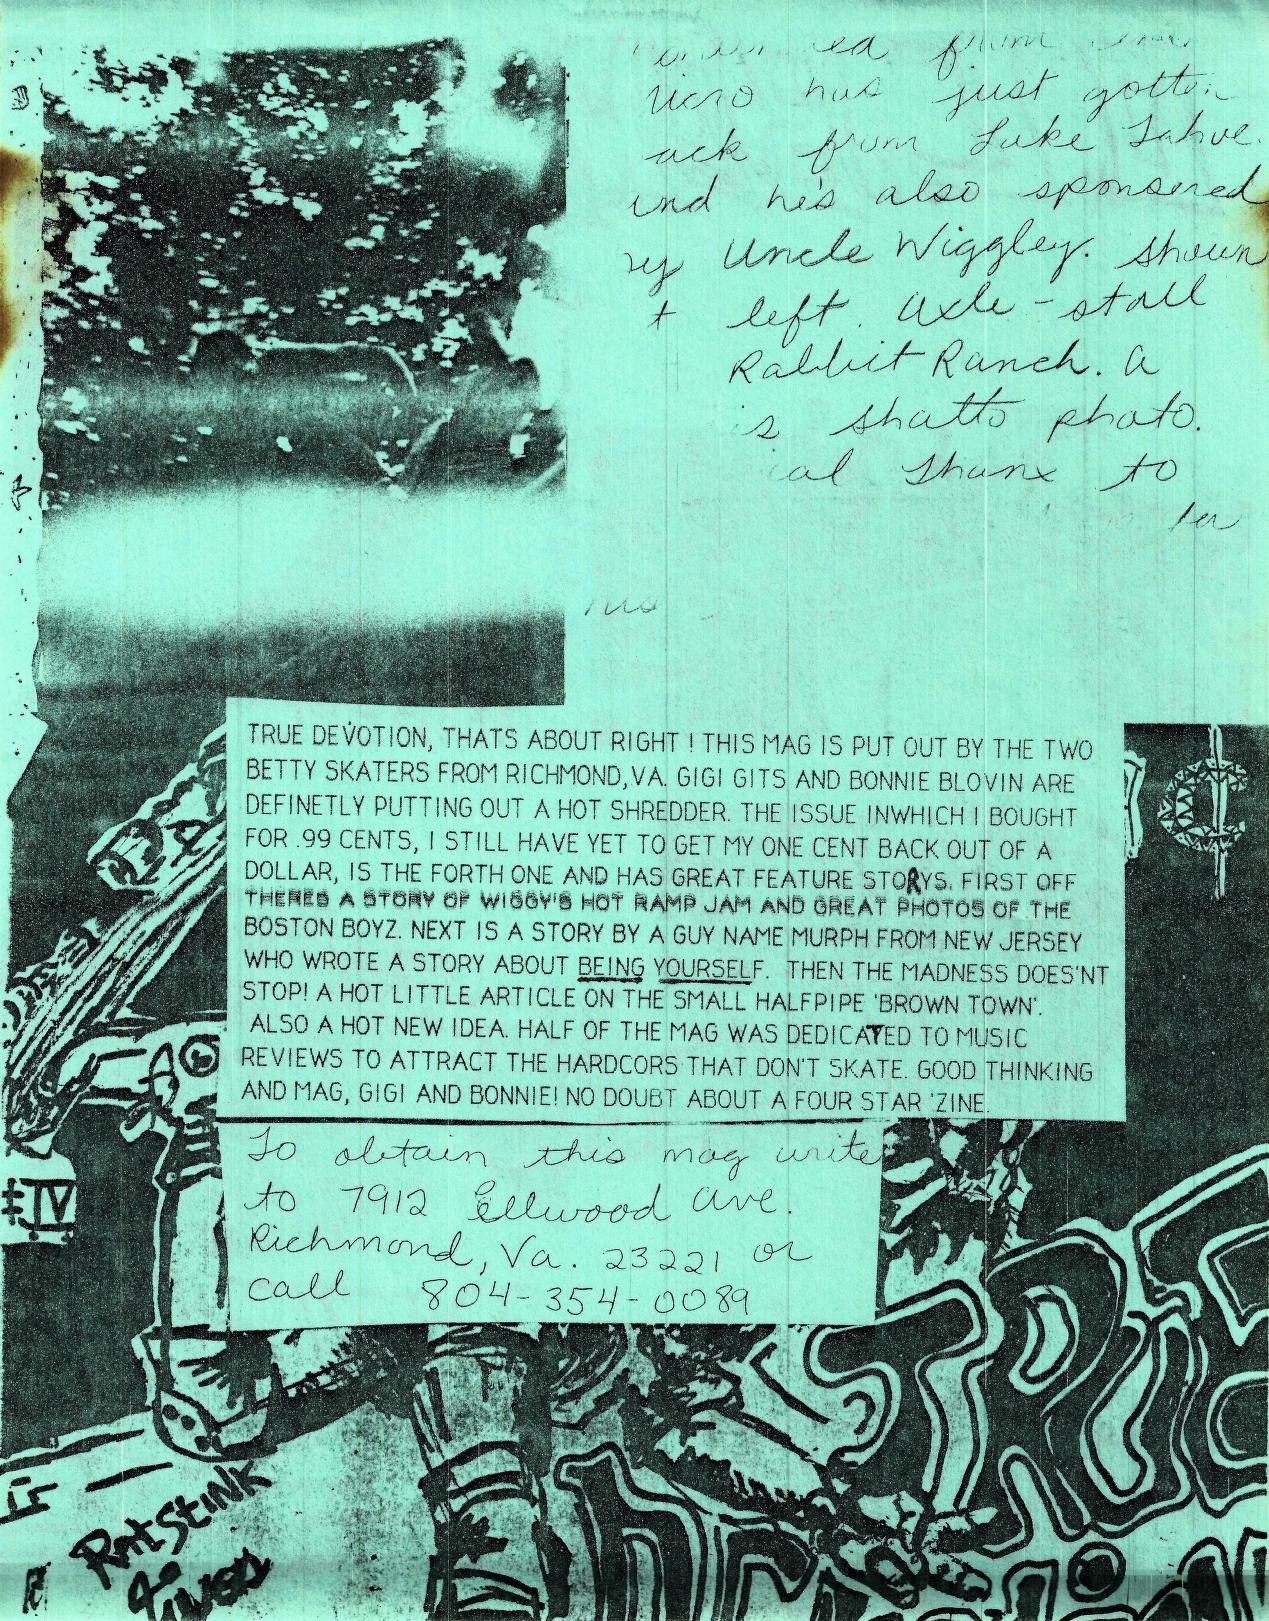 has just gotten
ack from Lake Tahoe.
and he's also sponsered
by Uncle Wiggley. Shown
t left. Axle-stall
Rabbit Ranch. A
is Shatto photo.
ial Thanx to
his
TRUE DEVOTION, THATS ABOUT RIGHT ! THIS MAG IS PUT OUT BY THE TWO
BETTY SKATERS FROM RICHMOND, VA. GIGI GITS AND BONNIE BLOVIN ARE
DEFINETLY PUTTING OUT A HOT SHREDDER. THE ISSUE INWHICH I BOUGHT
FOR .99 CENTS, I STILL HAVE YET TO GET MY ONE CENT BACK OUT OF A
DOLLAR, IS THE FORTH ONE AND HAS GREAT FEATURE STORYS. FIRST OFF
THERES A STORY OF WIGGY'S HOT RAMP JAM AND GREAT PHOTOS OF THE
BOSTON BOYZ. NEXT IS A STORY BY A GUY NAME MURPH FROM NEW JERSEY
WHO WROTE A STORY ABOUT BEING YOURSELF. THEN THE MADNESS DOES'NT
STOP! A HOT LITTLE ARTICLE ON THE SMALL HALFPIPE 'BROWN TOWN'.
ALSO A HOT NEW IDEA. HALF OF THE MAG WAS DEDICATED TO MUSIC
REVIEWS TO ATTRACT THE HARDCORS THAT DON'T SKATE. GOOD THINKING
AND MAG, GIGI AND BONNIE! NO DOUBT ABOUT A FOUR STAR 'ZINE.
To obtain this mag write
to 7912 Ellwood Ave.
Richmond, Va. 23221 or
call 804-354-0089
#IV
RAtStiNK